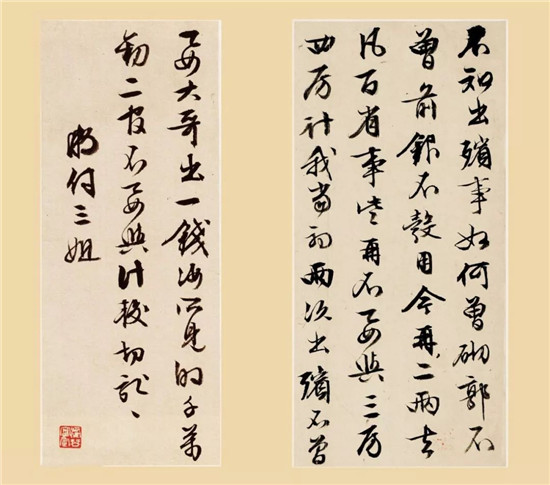 不知出殯事如何曾砌郭不
曾前銀不彀用今再二兩去
凡百省事些再不要與三房
四房計我當初兩次出殯不曾
要大哥出一錢汝所見的千萬
勸二官不要與計較切記〻
徵明付三姐